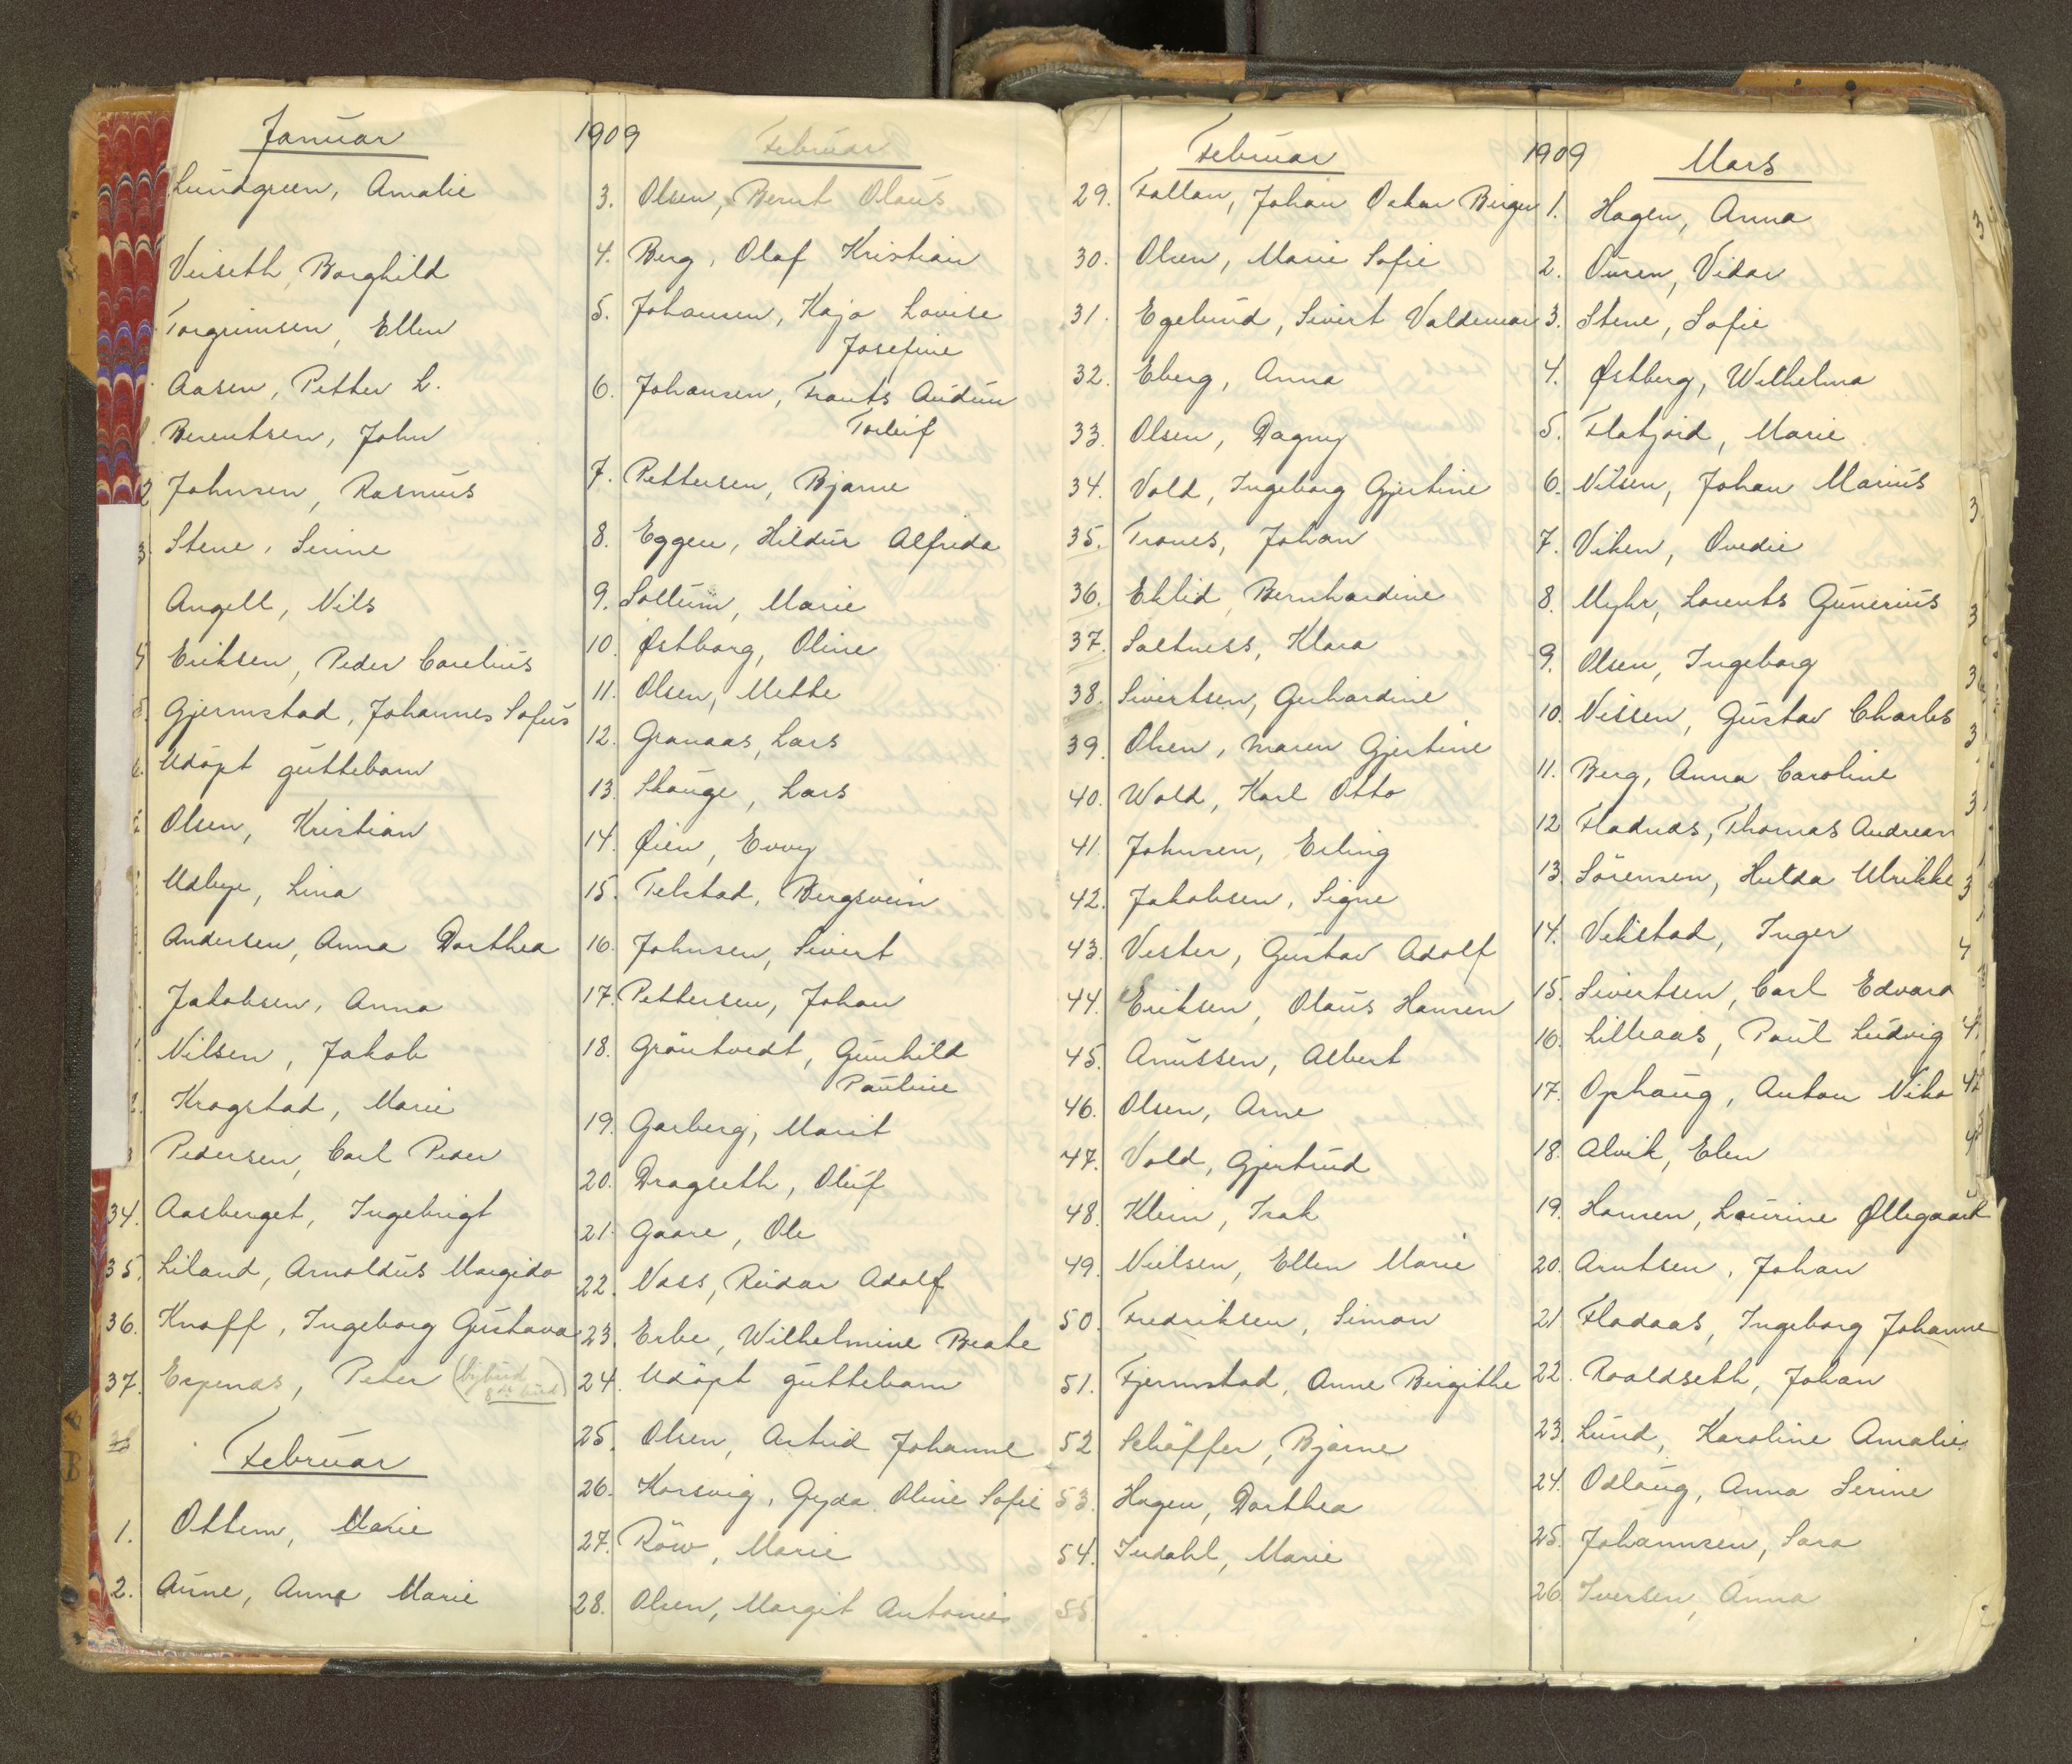 Januar
Lundgreen, Amalie
Veiseth, Borghild
Torgrimsen, Ellen
Aasen, Petter L.
Berentsen, John
2 Johnsen, Rasmus
3. Stene, Serine
Angell, Nils
Eriksen, Peder Carelius
Gjermstad, Johannes Sofus
Udöpt guttebarn
Olsen, Kristian
Udbye, Lina
Andersen, Anna Dorthea
Jakobsen, Anna
Nilsen, Jakob
Krogstad, Marie
Pedersen, Carl Peder
34. Aasberget, Ingebrigt
35. Liland, Arnoldus Margido
36. Knoff, Ingeborg Gustava
37. Espenas, Peter
38
Februar
1. Ottem, Marie
2. Aune, Anna Marie
1909
Februar
3. Olsen, Bernt Olaus
4. Berg, Olaf Kristian
5. Johansen, Kaja Lovise
Josefine
6. Johansen, Frants Audun
Torleif
7. Pettersen, Bjarne
8. Eggen, Hildur Alfrida
9. Sollum, Marie
10. Østborg, Oline
11. Olsen, Mette
12. Granaas, Lars
13. Skauge, Lars
14. Øien, Evvy
15. Telstad, Bergsvein
16. Johnsen, Sivert
17. Pettersen, Johan
18. Gröntvedt, Gunhild
Pauline
19. Garberg, Marit
20. Dragseth, Oluf
21. Gaare, Ole
22. Nass, Reidar Adolf
23. Erbe, Wilhelmine Beate
24. Udöpt guttebarn
25. Olsen, Astrid Johanne
26. Korsvig, Gyda Oline Sofie
27. Röw, Marie
28. Olsen, Margit Antonie
Februar
29. Fallan, Johan Oskar Birger
30. Olsen, Marie Sofie
31. Egelund, Sivert Valdemar
32. Eberg, Anna
33. Olsen, Dagny
34. Vold, Ingeborg Gjertine
35. Tranes, Johan
36. Eklid, Bernhardine
37. Saltness, Klara
38. Sivertsen, Gerhardine
39. Olsen, Maren Gjertine
40. Wold, Karl Otto
41. Johnsen, Erling
42. Jakobsen, Signe
43. Vester, Gustav Adolf
44. Eriksen, Olaus Hansen
45. Anussen, Albert
46. Olsen, Arne
47. Vold, Gjertrud
48. Klein, Isak
49. Nielsen, Ellen Marie
50. Fredriksen, Simon
51. Fjermstad, Anne Birgithe
52 Schöffer, Bjarne
53. Hagen, Dorthea
54. Indahl, Marie
55.
1909
Mars
1. Hagen, Anna
2. Ouren, Vidar
3. Stene, Sofie
4. Østberg, Wilhelma
5. Flatjord, Marie
6. Nilsen, Johan Marius
7. Viken, Ovedie
8. Myhr, Lorents Gunerius
9. Olsen, Ingeborg
10. Nissen, Gustav Charles
11. Berg, Anna Caroline
12 Fladnas, Thomas Andreas
13. Sörensen, Hulda Ulrikke
14. Vekstad, Inger
15. Sivertsen, Carl Edvard
16. Lilleaas, Paul Ludvig
17. Ophaug, Anton Niko
18. Alvik, Elen
19. Hansen, Laurine Øllegaard
20. Arntsen, Johan
21 Flodaas, Ingeborg Johanne
22. Roaldseth, Johan
23. Lund, Karoline Amalie
24. Odlaug, Anna Serine
25. Johannsen, Sara
26. Iversen, Anna